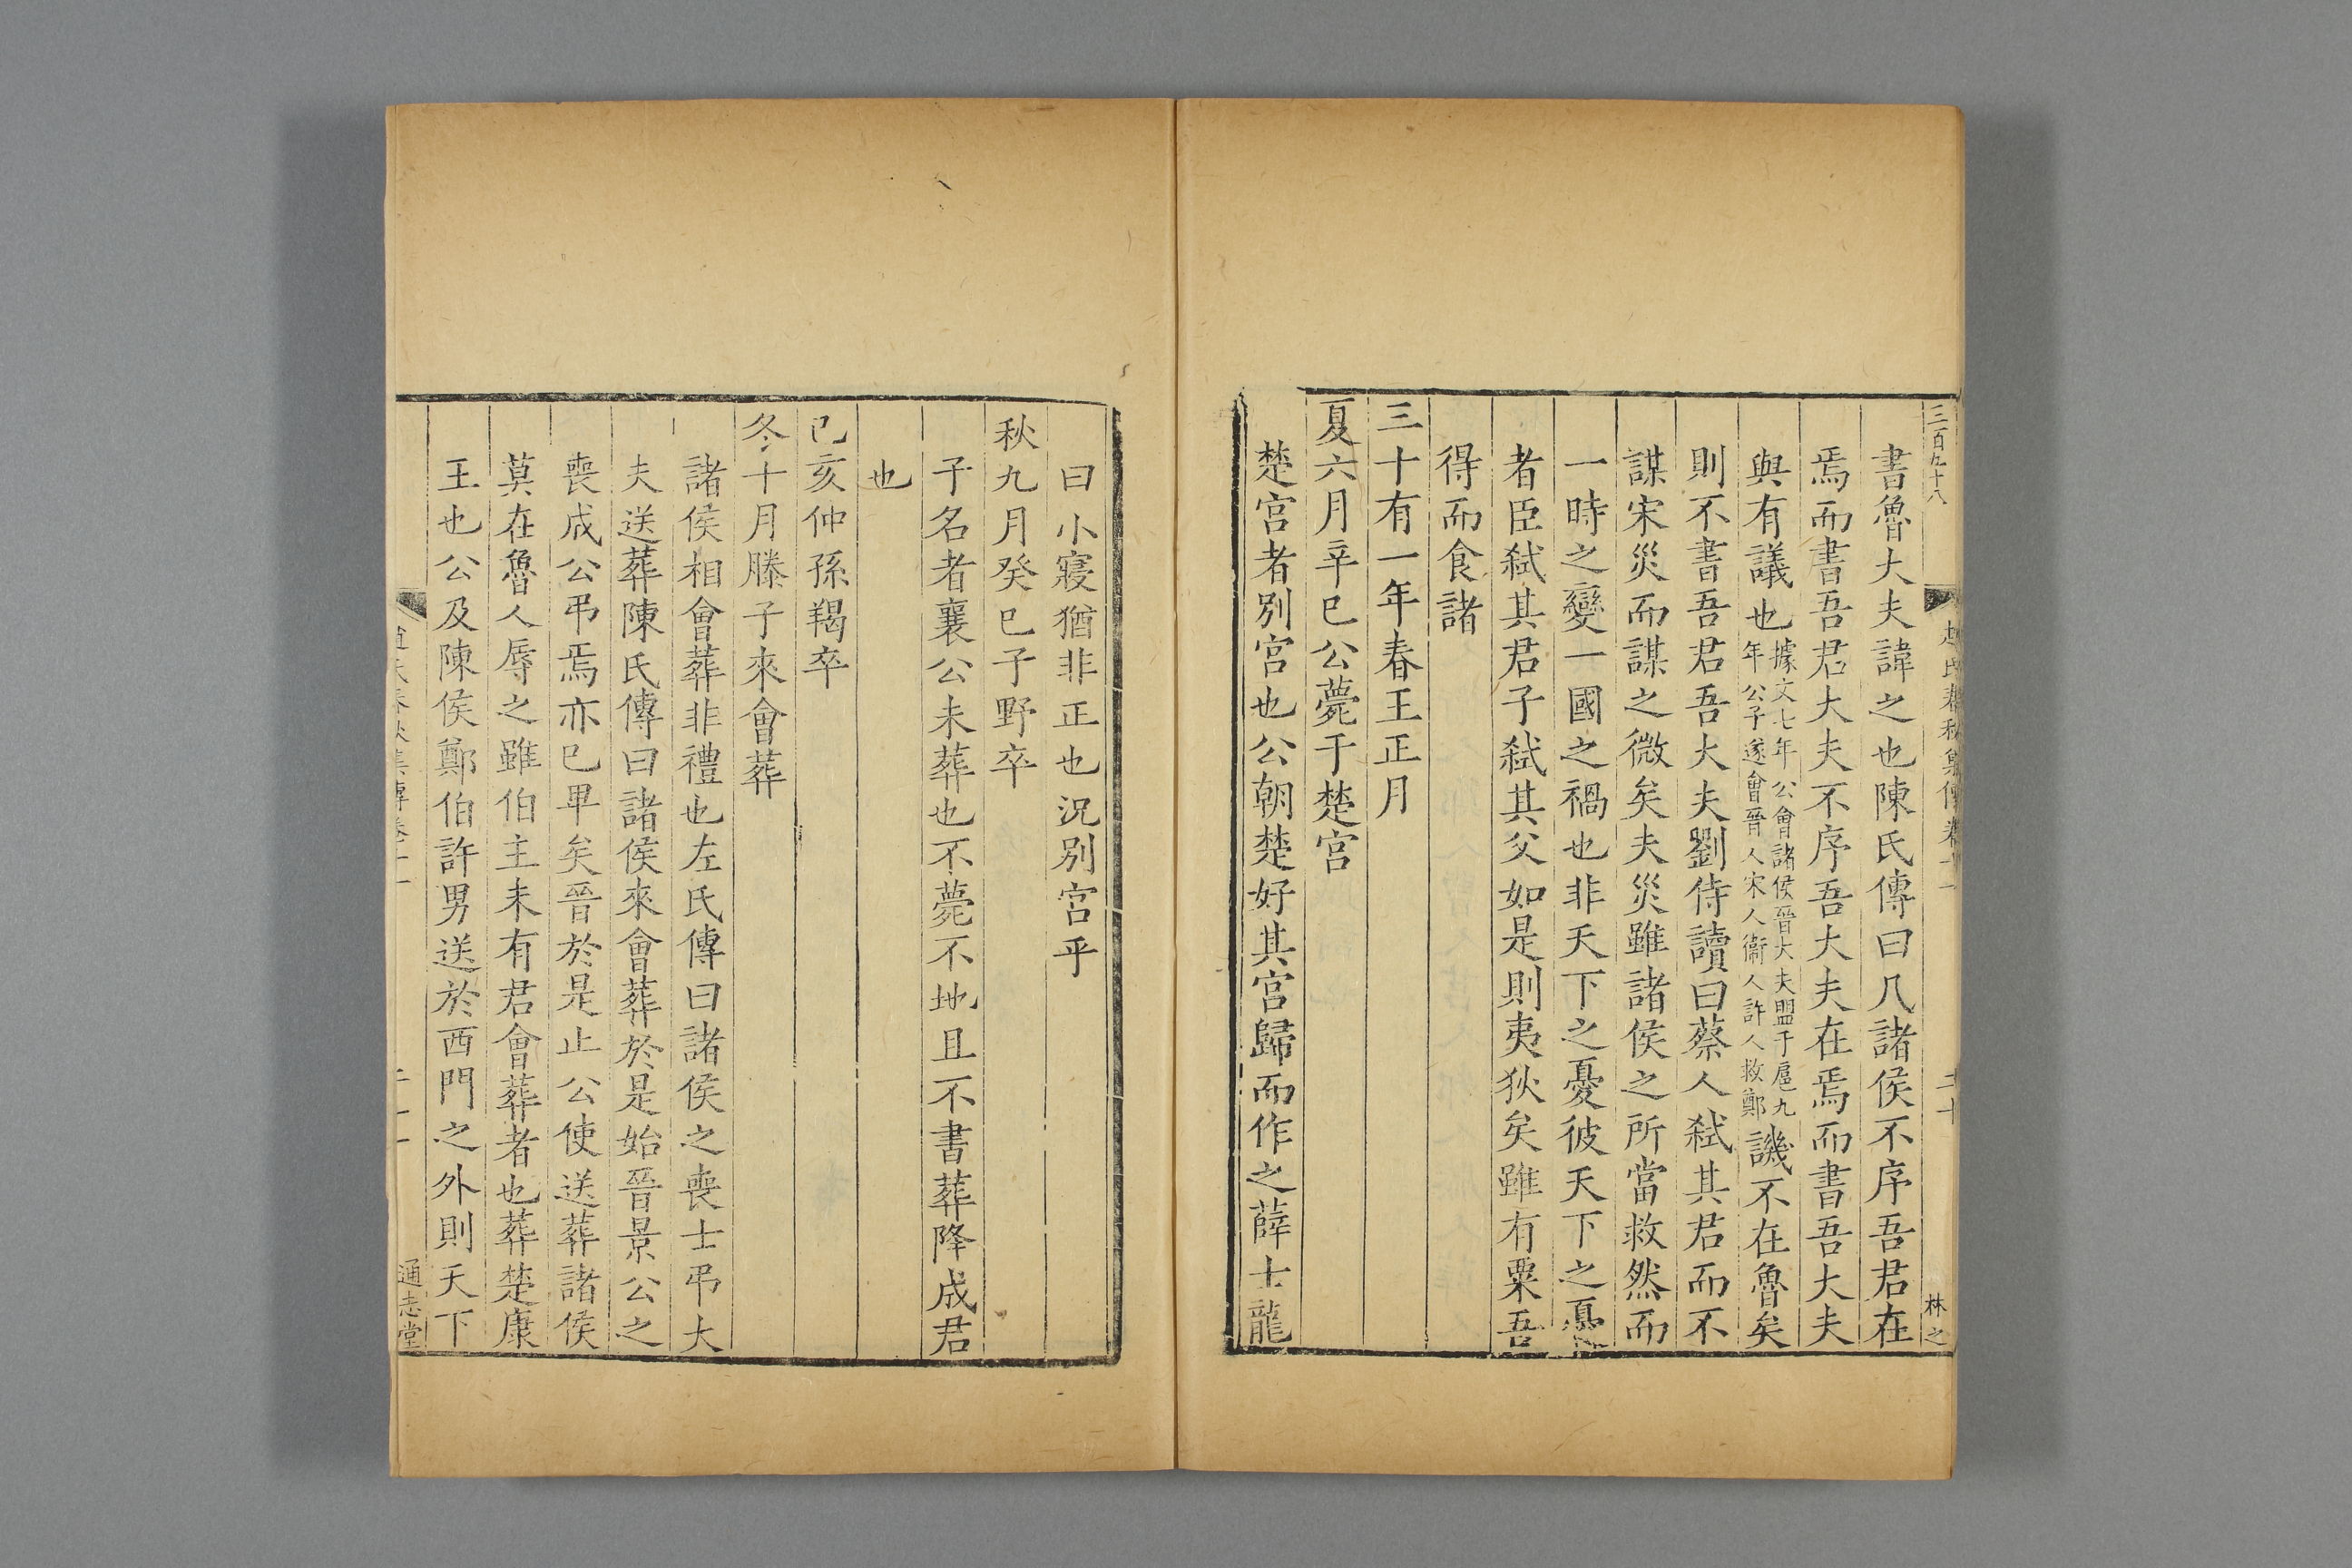 三百九十八 趙氏春秋集傳卷十一 二十 林之
書魯大夫諱之也陳氏傳曰凡諸侯不序吾君在
焉而書吾君大夫不序吾大夫在焉而書吾大夫
與有議也據文七年公會諸侯晉大夫盟于扈九年公子遂會晉人宋人衞人許人救鄭譏不在魯矣
則不書吾君吾大夫劉侍讀曰蔡人弑其君而不
謀宋災而謀之微矣夫災雖諸侯之所當救然而
一時之變一國之禍也非天下之憂彼天下之憂
者臣弑其君子弑其父如是則夷狄矣雖有粟吾
得而食諸
三十有一年春王正月
夏六月辛巳公薨于楚宮
楚宮者別宮也公朝楚好其宮歸而作之薛士龍
曰小寢猶非正也況別宮乎
秋九月癸巳子野卒
子名者襄公未葬也不薨不地且不書葬降成君
也
己亥仲孫羯卒
冬十月滕子來會葬
諸侯相會葬非禮也左氏傳曰諸侯之喪士弔大
夫送葬陳氏傳曰諸侯來會葬於是始晉景公之
喪成公弔焉亦已卑矣晉於是止公使送葬諸侯
莫在魯人辱之雖伯主未有君會葬者也葬楚康
王也公及陳侯鄭伯許男送於西門之外則天下
春秋集傳卷十一 二十一 通志堂